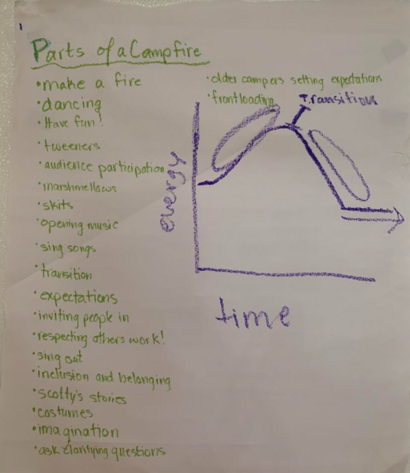 Parts of a Campfire
• make a fire
• dancing
• Have fun!
• tweeners
• audience participation
• marshmellows
• skits
• opening music
• sing songs
• transition
• expectations
• inviting people in
• respecting others work!
• sing out
• inclusion and belonging
• Scotty's stories
• costumes
• imagination
• ask clarifying questions
• older campers setting expectations
• frontloading
Transition
energy
time